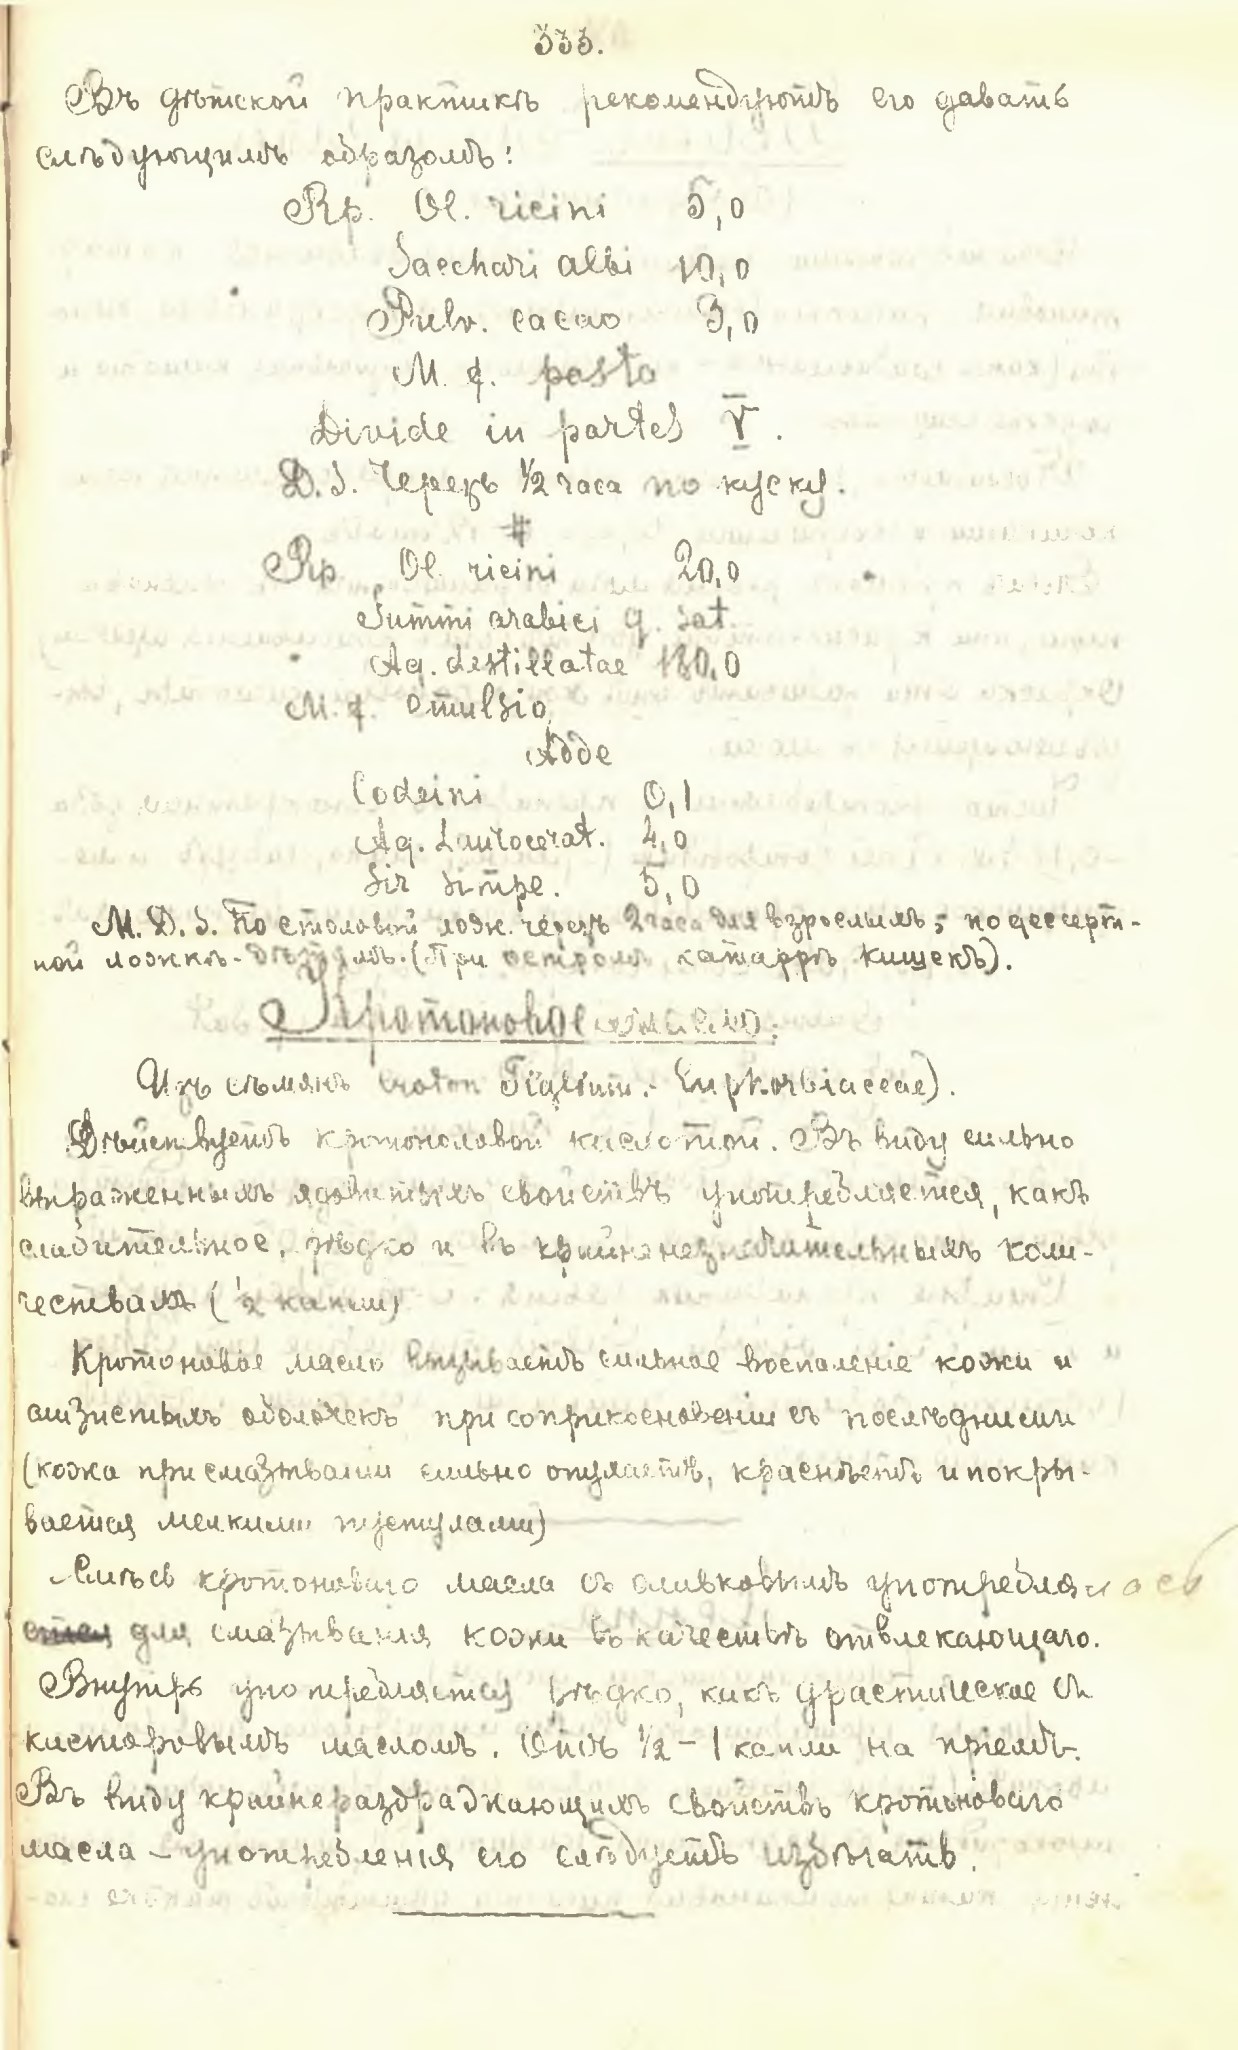 333.
Въ дѣтской практикѣ рекомендуютъ его давать
слѣдующимъ образомъ:
Rp. Ol. ricini 5,0
Sacchari albi 10,0
Pulv. cacao 3,0
M. f. pasta
Divide in partes V.
D. S. Черезъ 1/2 часа по куску.
#
Rp. Ol. ricini 20,0
Gummi arabici q. sat.
Aq. destillatae 180,0
M. f. emulsio
Adde
Codeini 0,1
Aq. Laurocerat. 4,0
Sir simpe. 5,0
M. D. S. По столовой ложк. черезъ 2 часа для взрослыхъ; по десерт-
ной ложкѣ-дѣтямъ. (При остромъ катаррѣ кишекъ).
Кротоновое масло.
Изъ сѣмянъ Croton Tiglium.- Euphorbiaceae).
Дѣйствуетъ кротоноловой кислотой. Въ виду сильно
выраженныхъ ядовитыхъ свойствъ употребляется, какъ
слабительное, рѣдко и въ крайне незначительныхъ коли-
чествахъ (1/2 капли)
Кротоновое масло вызываетъ сильное воспаленіе кожи и
слизистыхъ оболочекъ при соприкосновеніи съ послѣдними
(кожа при смазываніи сильно опухаетъ, краснѣетъ и покры-
вается мелкими пустулами)
Смѣсь кротоноваго масла съ оливковымъ употреблялось
для смазыванія кожи въ качествѣ отвлекающаго.
Внутрь употребляется рѣдко, какъ драстическое съ
касторовымъ масломъ. Отъ 1/2 - 1 капли на пріемъ.
Въ виду крайне раздражающихъ свойствъ кротоноваго
масла - употребленія его слѣдуетъ избѣгать.